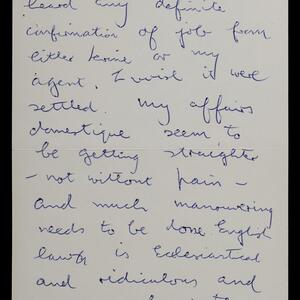 heard any definite
confirmation of job from
either home or my
agent. I wish it were
settled. My affairs
domestique seem to
be getting straighter
- not without pain -
and much manouvering
needs to be done. English
law is Eclesiastical
and ridiculous and